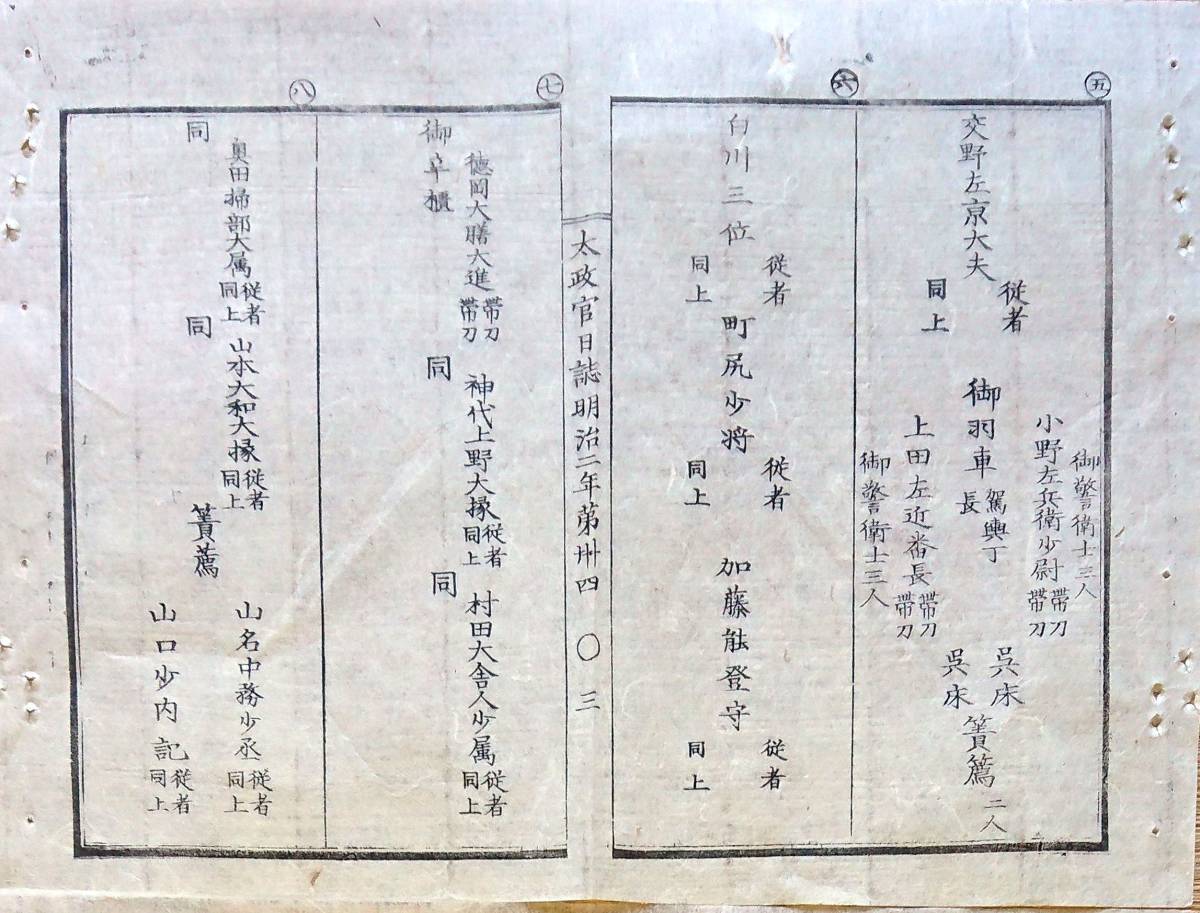 五
交野左京大夫
従者
同上
御警衛士三人
小野左兵衛少尉帶刀帶刀
御羽車
駕輿丁
長
上田左近番長帶刀帶刀
御警衛士三人
呉床
呉床
簀薦
二人
六
白川三位
従者
同上
町尻少将
従者
同上
加藤能登守
従者
同上
太政官日誌明治二年第卅四 〇 三
七
御辛櫃
徳岡大膳大進帶刀帶刀
同
神代上野大掾従者同上
同
村田大舎人少属従者同上
八
同
奥田掃部大属従者同上
同
山本大和大掾従者同上
簀薦
山名中務少丞従者同上
山口少内記従者同上